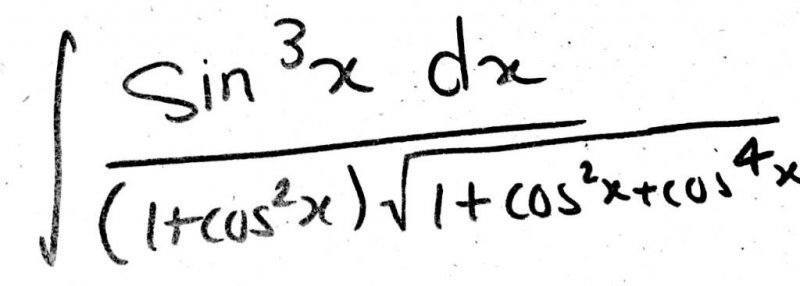 ∫ sin³x dx
(1+cos²x)√1+cos²x+cos⁴x